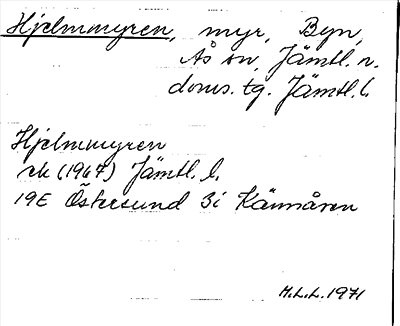 Hjelmmyren, myr, Byn,
Ås sn, Jämtl. n.
doms. tg. Jämtl. l.
Hjelmmyren
ek (1967) Jämtl. l.
19E Östersund 3i Kännåsen
M.L.L. 1971